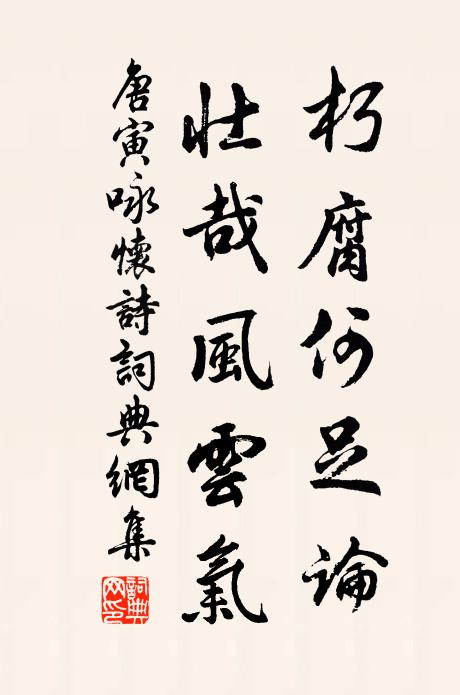 朽腐何足論
壯哉風雲氣
唐寅咏懷詩詞典網集
詞典網印